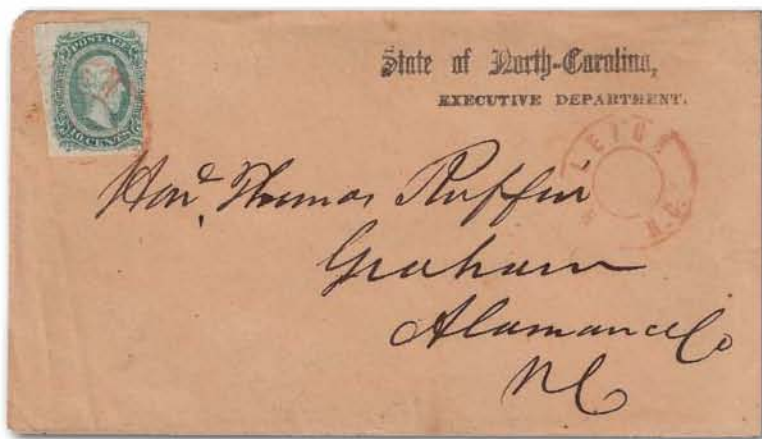 POSTAGE
10 CENTS
State of North-Carolina,
EXECUTIVE DEPARTMENT.
LEIGH
N.C.
Hon. Thomas Ruffin
Graham
Alamance Co
NC